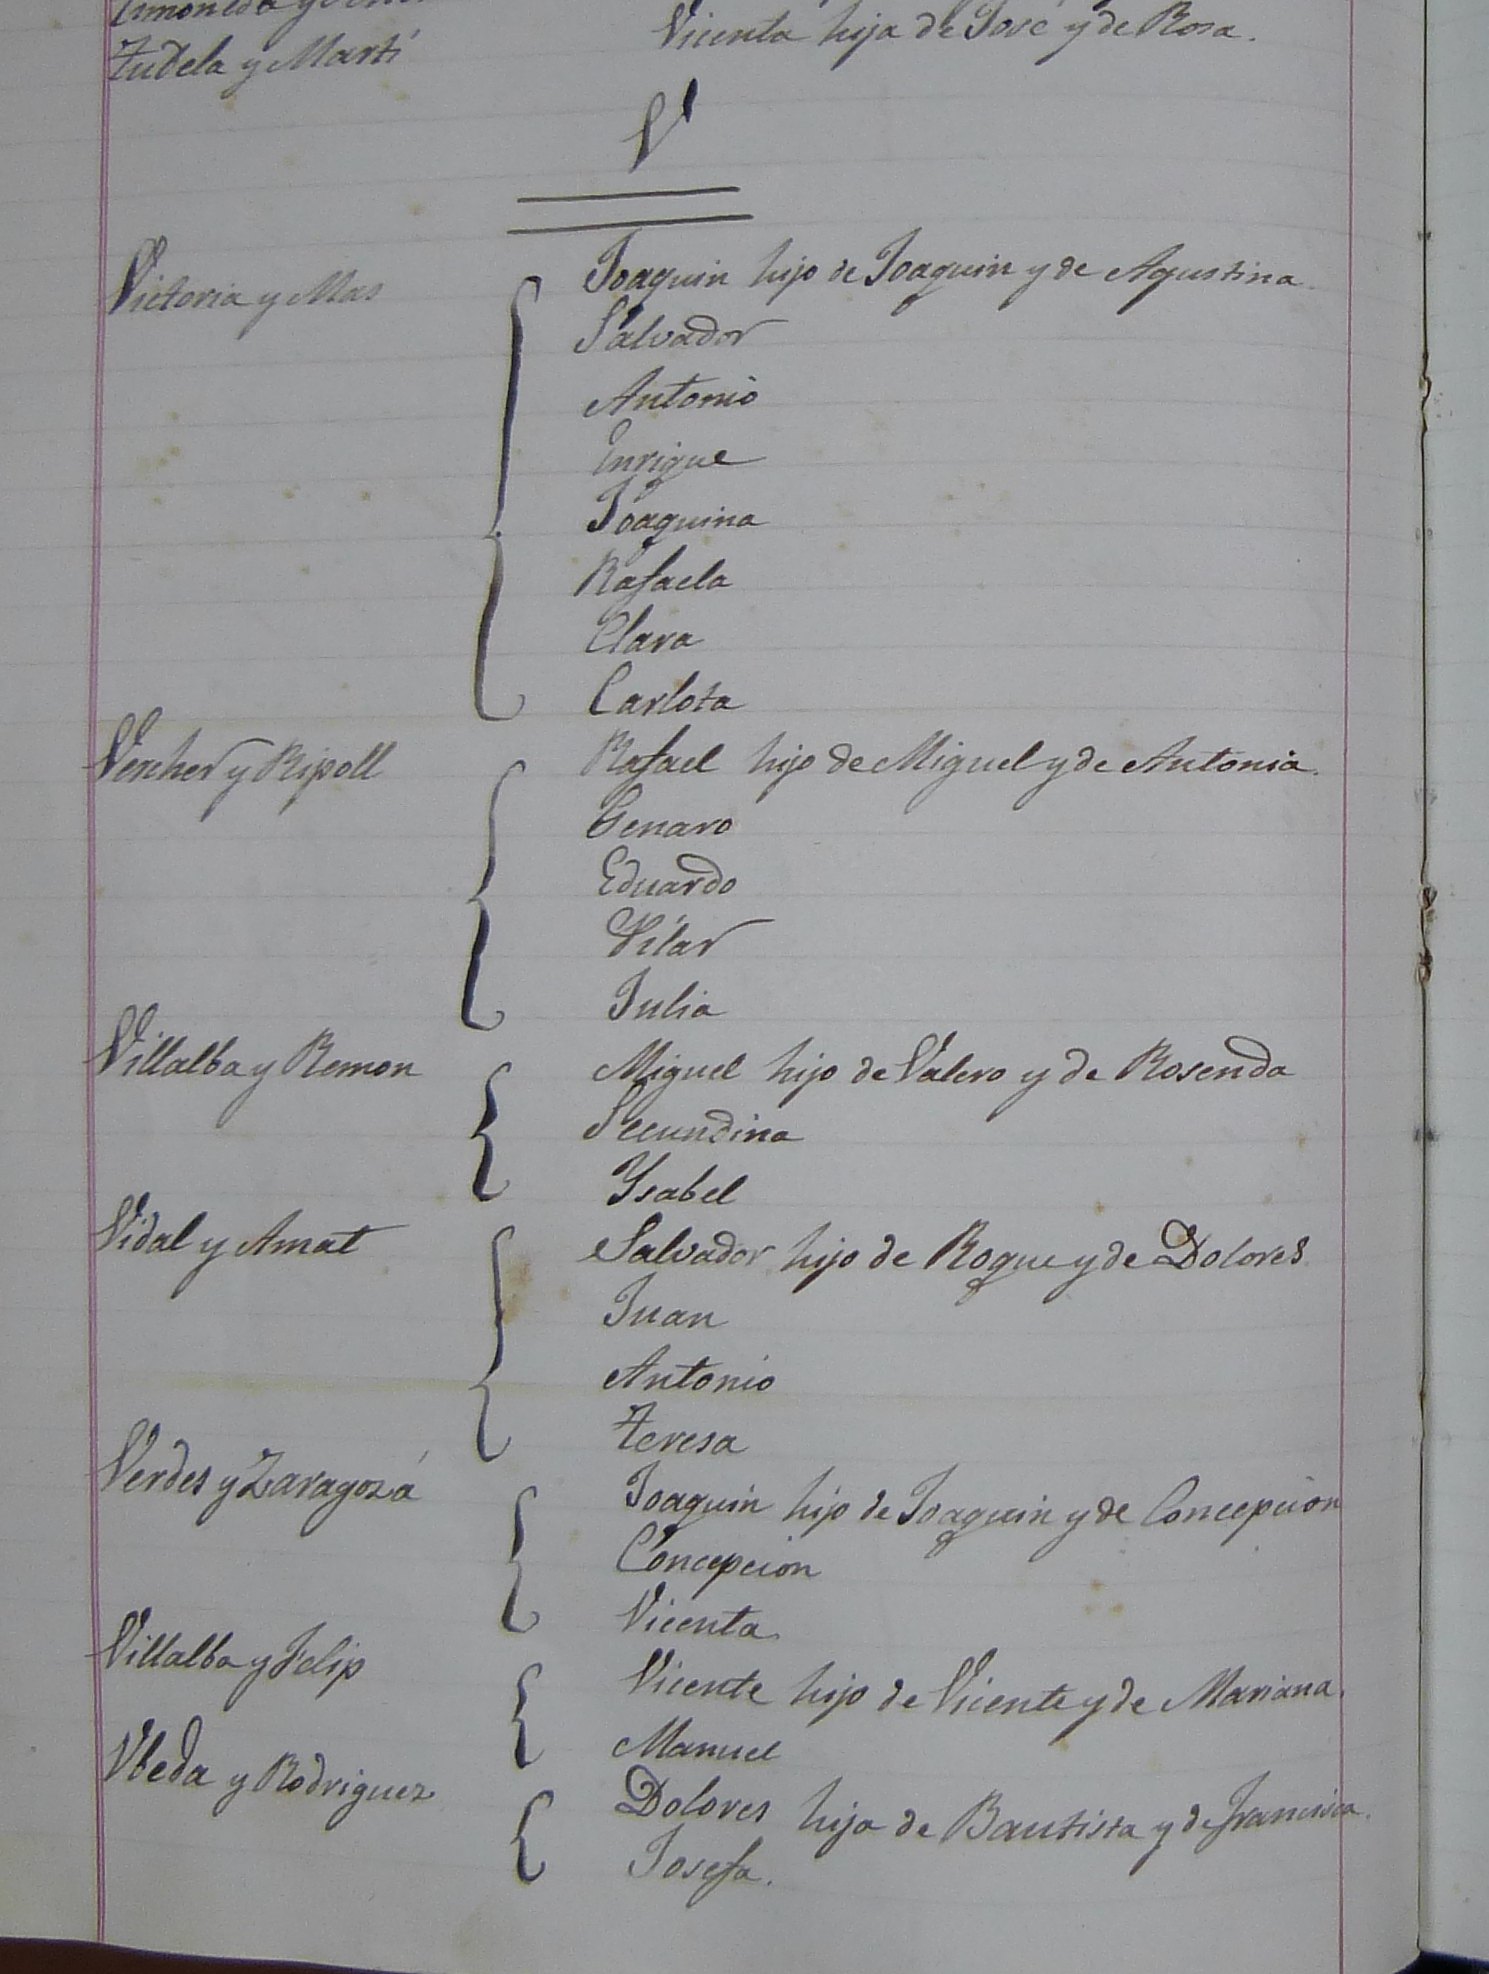 Tudela y Martí
Vicenta hija de José y de Rosa.
V
Victoria y Mas
Joaquin hijo de Joaquin y de Agustina.
Salvador
Antonio
Enrique
Joaquina
Rafaela
Clara
Carlota
Vercher y Ripoll
Rafael hijo de Miguel y de Antonia.
Genaro
Eduardo
Pilar
Julia
Villalba y Remon
Miguel hijo de Valero y de Rosenda
Secundina
Ysabel
Vidal y Amat
Salvador hijo de Roque y de Dolores.
Juan
Antonio
Teresa
Verdes y Zaragozá
Joaquin hijo de Joaquin y de Concepcion
Concepcion
Vicenta
Villalba y Felip
Vicente hijo de Vicente y de Mariana.
Manuel
Ubeda y Rodriguez
Dolores hija de Bautista y de Francisca.
Josefa.